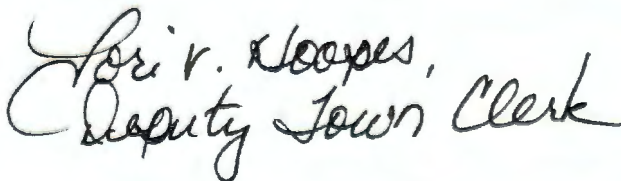 Lori V. Hoopes,
Deputy Town Clerk